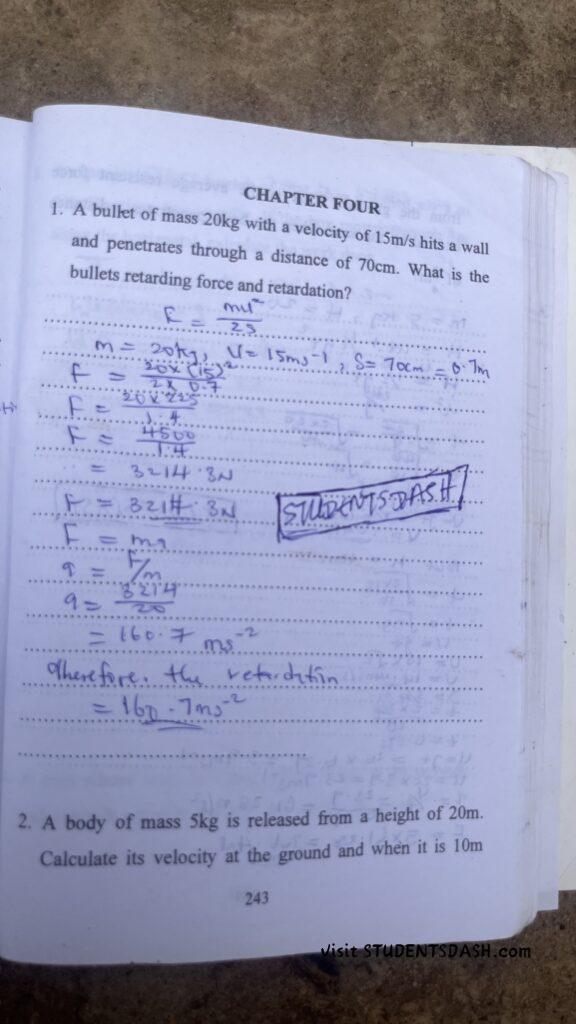 CHAPTER FOUR
1. A bullet of mass 20kg with a velocity of 15m/s hits a wall
and penetrates through a distance of 70cm. What is the
bullets retarding force and retardation?
F = mu²/2s
m = 20kg, U = 15ms-1, S = 70cm = 0.7m
F = 20 x (15)²/2 x 0.7
F = 20 x 225/1.4
F = 4500/1.4
= 3214.3N
F = 3214.3N
STUDENTSDASH
F = ma
a = F/m
a = 3214/20
= 160.7 ms-2
Therefore, the retardation
= 160.7ms-2
2. A body of mass 5kg is released from a height of 20m.
Calculate its velocity at the ground and when it is 10m
243
visit STUDENTSDASH.com